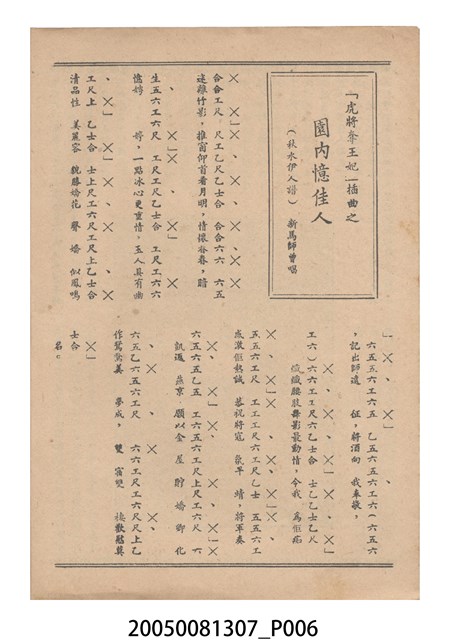 「虎將奪王妃」插曲之
園內憶佳人
（秋水伊人譜）新馬師曾唱
合合工尺 尺工乙尺乙士合 合合六六 六五
迷離竹影，推窗仰首看月明，情懷
生五六工六尺 工尺工尺乙士合 工尺工六六
憶娉 婷，一點冰心更重情。玉人具有幽
工尺上 乙士合 士上尺工六尺工尺上乙士合
清品性 美麗容 貌勝嬌花 聲 嬌 似鳳鳴
六五五六工六五 乙五五六工六（六五六
，記出師遠 征，將酒向 我奉敬，
工六）六六工工尺六乙士合 士乙士乙尺
纖纖腰肢舞影最動情，今我 為佢痴
五五六工尺 工工工尺六工尺乙士 五五六工
感激佢熱誠 恭祝將寇 氛平 靖，將軍奏
六五六五乙五 工六五六工尺上尺工六尺
凱返 燕京 願以金 屋 貯 嬌 卿 化
六五乙六五六工尺 六六工尺工六尺尺上乙
作鴛鴦美 夢成， 雙 宿雙 棲歡慰莫
士合
名。
20050081307_P006